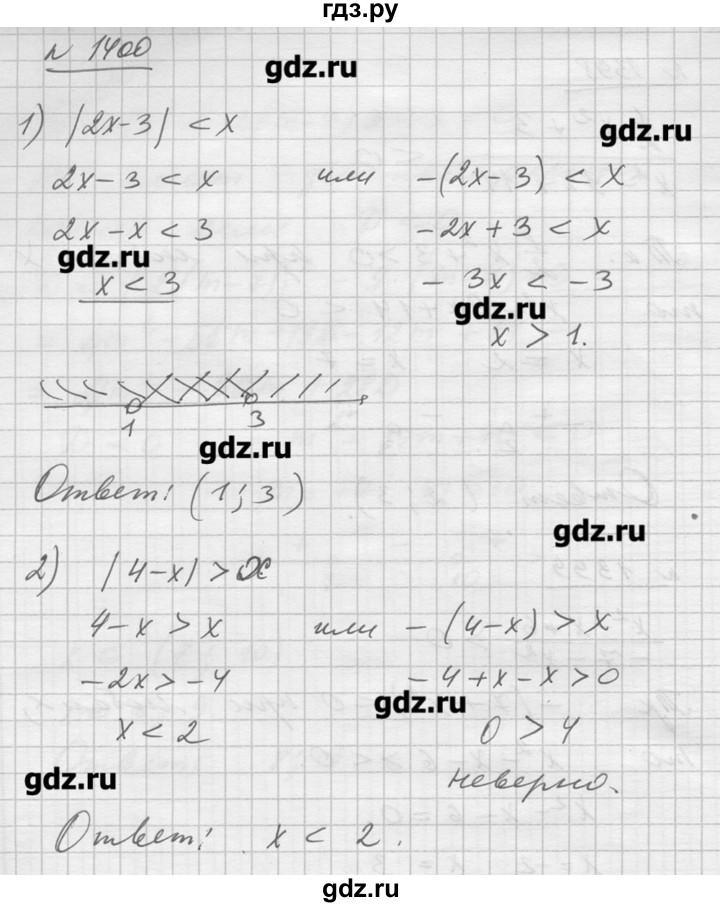 гдз.ру
№ 1400
gdz.ru
1) |2x-3| < x
gdz.ru
2x-3 < x или -(2x-3) < x
2x-x < 3 -2x+3 < x
gdz.ru
x < 3 -3x < -3
gdz.ru
x > 1.
1 3
gdz.ru
Ответ: (1; 3)
gdz.ru
2) |4-x| > x
4-x > x или -(4-x) > x
-2x > -4 -4+x-x > 0
gdz.ru
x < 2 0 > 4
gdz.ru
неверно.
Ответ: x < 2.
gdz.ru